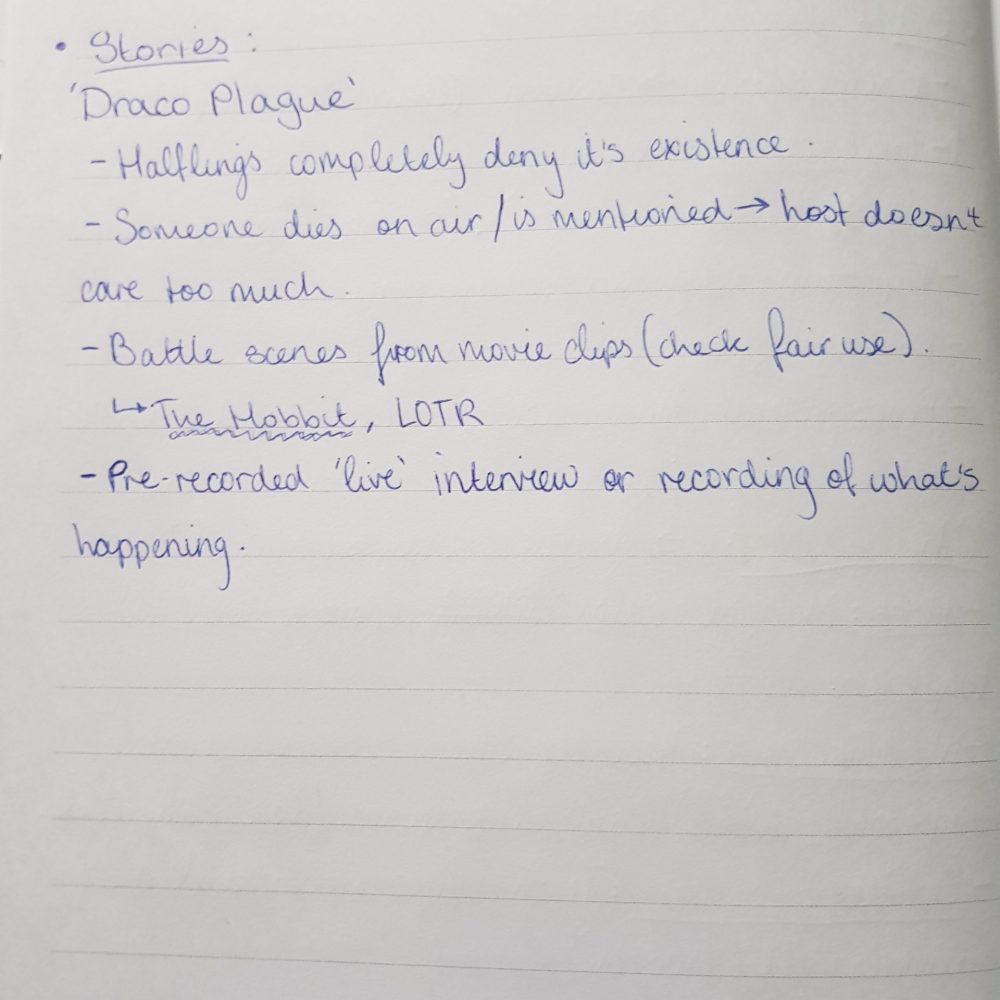 • Stories :
'Draco Plague'
- Halflings completely deny it's existence .
- Someone dies on air / is mentioned → host doesn't
care too much.
- Battle scenes from movie clips (check fair use).
↳ The Hobbit, LOTR
- Pre-recorded 'live' interview or recording of what's
happening.